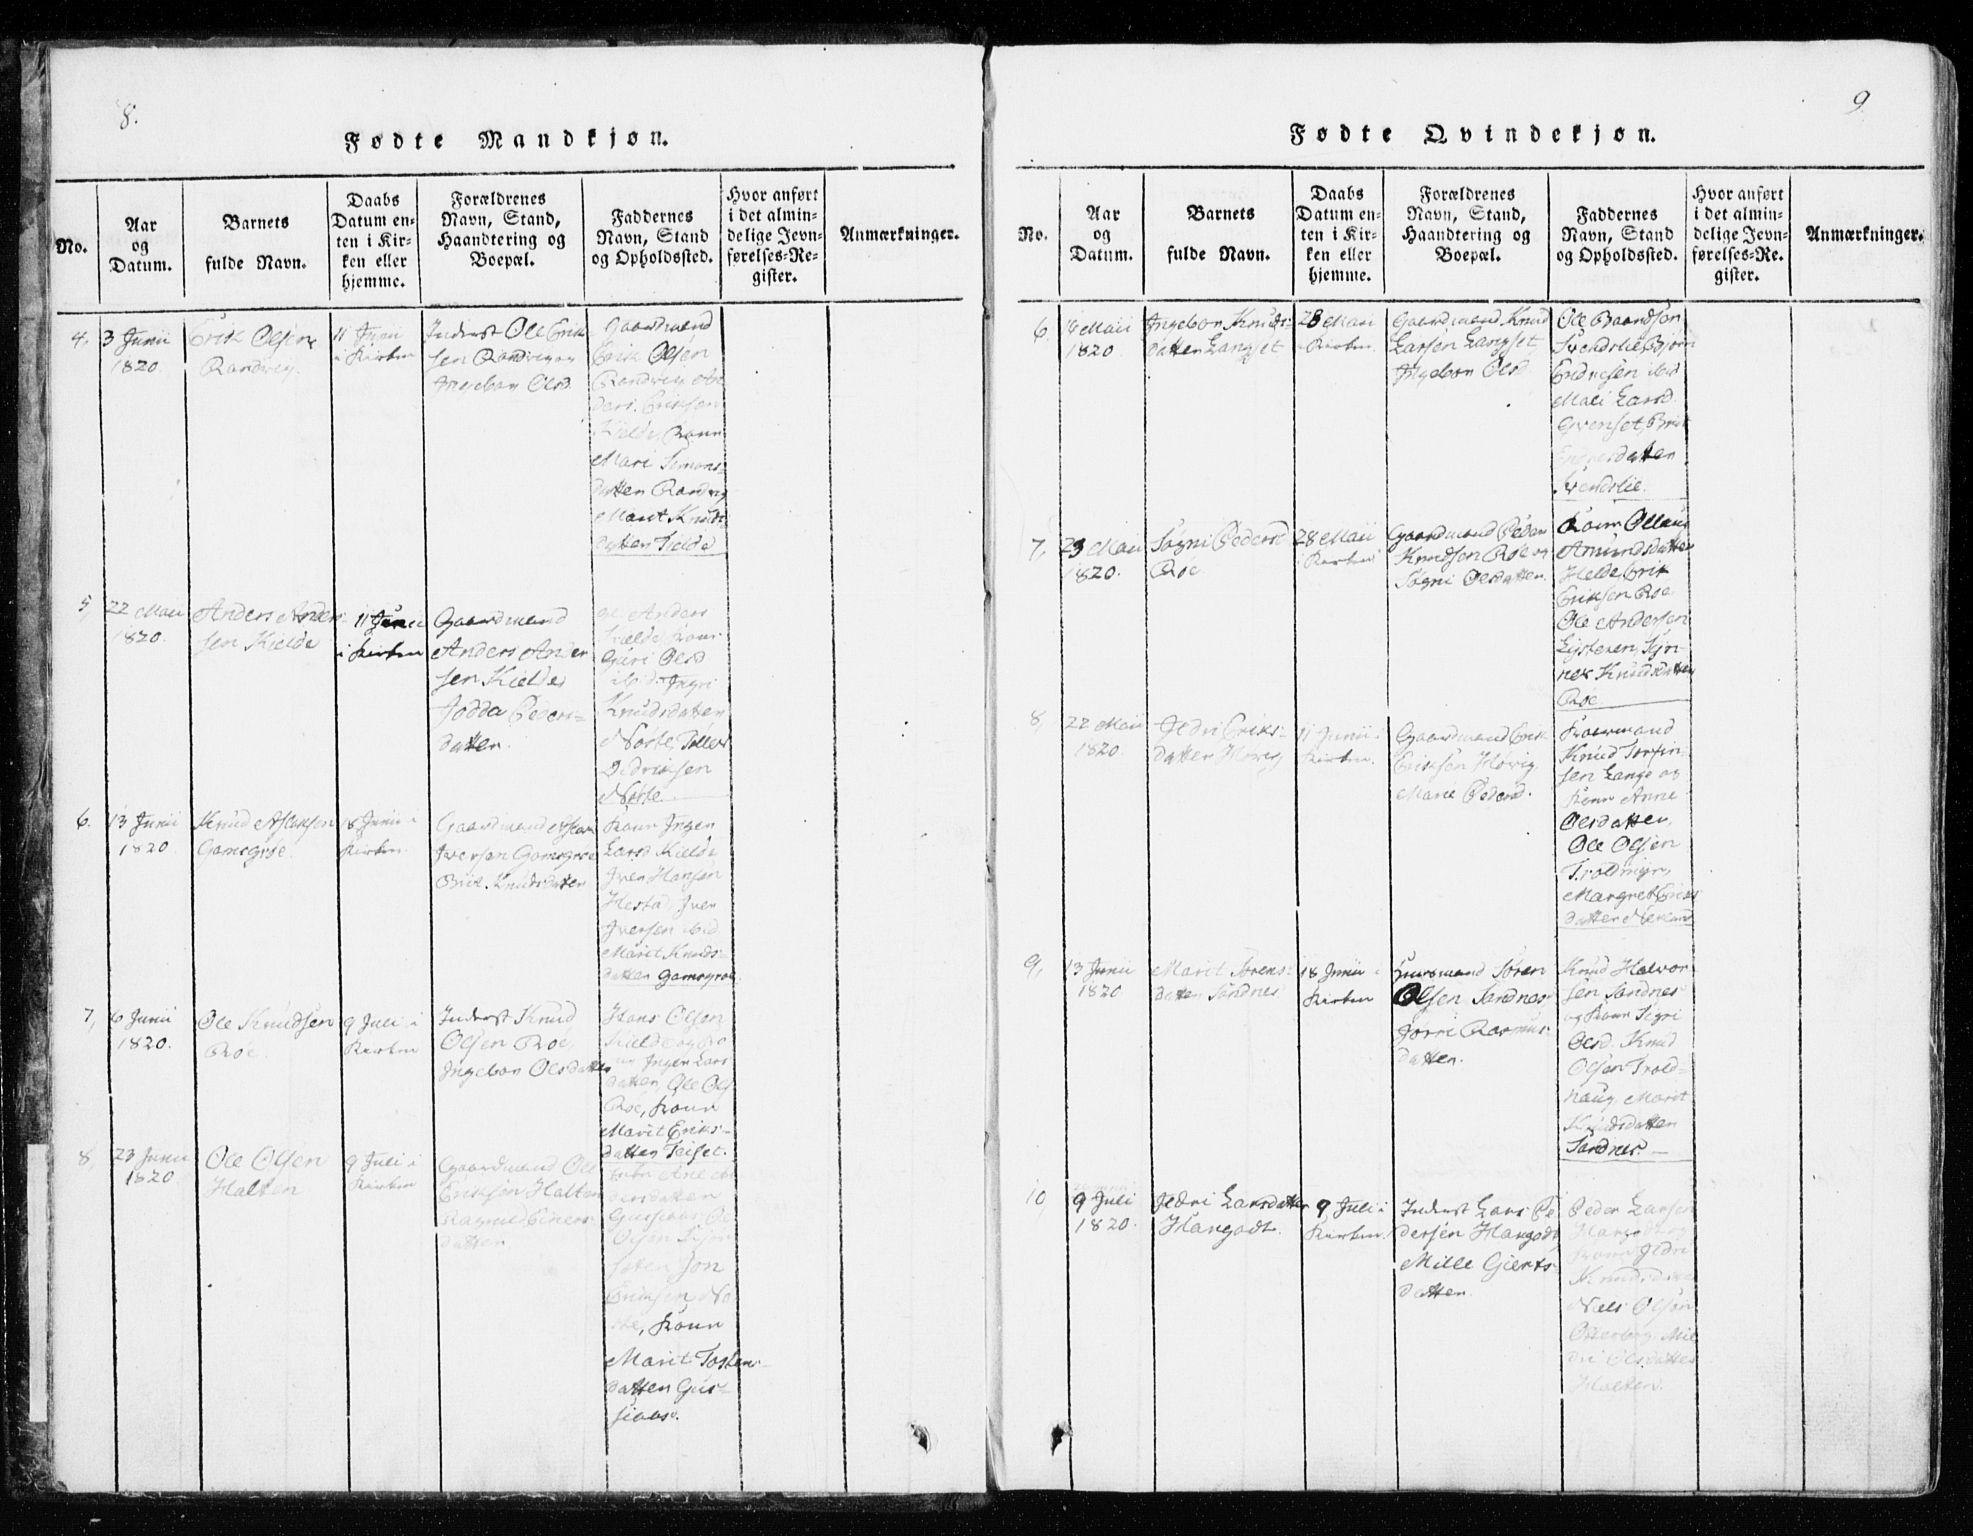 8.
Fødte Mandkjøn.
No.
Aar
og
Datum.
Barnets
fulde Navn.
Daabs
Datum en-
ten i Kir-
ken eller
hjemme.
Forældrenes
Navn, Stand,
Haandtering og
Boepæl.
Faddernes
Navn, Stand
og Opholdssted.
Hvor anført
i det almin-
delige Jevn-
førelses-Re-
gister.
Anmærkninger.
4, 3 Junii
1820
Erik Olsen
Randvig
11 Junii
i Kirken
Inderst Ole Erik-
sen Randvig og
Ingebor Olsd.
Gaardmand
Erik Olsen
Randvig
Eriksen
Kielde, Konn
Mari Simons-
datter Randvig
Marit Knuds-
datter Kielde
5, 22 Maii
1820.
Anders Ander-
sen Kielde
11 Junii
i Kirken
Gaardmand
Anders Ander
sen Kielde,
Jodda Peders-
datter.
Anders
Kielde, Konn
Guri Olsd
ibid. Ingri
Knudsdatter
Norte, Peder
Didriksen
Norte.
6. 13 Junii
1820
Knud Aslaksen
Gamsgroe
18 Junii i
Kirken
Gaardmand
Iversen Gamsgroe
Brit. Knudsdatter
Konn Ingen
Larsd Kielde
Iver Hansen
Hestad, Iver
Iversen ibid
Marit Knuds-
datter Gamsgroe
7, 6 Junii
1820.
Ole Knudsen
Roe.
9 Juli i
Kirken
Inderst Knud
Olsen Roe,
Ingebor Olsdatter
Hans Olsen
Kielde og Ko
Ingen Lars
datter, Ole Ols
Roe, Konn
Marit Eriks-
datter Teiset.
8, 23 Junii
1820
Ole Olsen
Halten
9 Juli i
Kirken
Gaardmand Ole
Eriksen Halten
Ragnild Einers-
datter
datter
Olsen
Jon
Eriksen No
Konn
Marit Tosten-
datter Gus-
siaas.
9
Fødte Qvindekjøn.
No.
Aar
og
Datum.
Barnets
fulde Navn.
Daabs
Datum en-
ten i Kir-
ken eller
hjemme.
Forældrenes
Navn, Stand,
Haandtering og
Boepæl.
Faddernes
Navn, Stand
og Opholdssted.
Hvor anført
i det almin-
delige Jevn-
førelses-Re-
gister.
Anmærkninger.
6, Maii
1820
Ingebor Knuds-
datter Langset
28 Maii
Kirken
Gaardmand Knud
Larsen Langset
Ingebor Olsd
Ole Baardsen
Svendslie, Bjørn
Endresen ibid
Mali Larsd
Grønset, Brit
datter
Svendslie.
7, 23 Maii
1820.
Søgni Pedersd
Roe
28 Maii
Kirken
Gaardmand Peder
Knudsen Roe og
Søgni Olsdatter.
Konn Ollaug
Amundsdatter
Helde, Erik
Eriksen Roe
Ole Andersen
Lysteren,
Knudsdatter
Roe
8, 22 Maii
1820.
Jldri Eriks-
datter Hovig
11 Junii i
Kirken.
Gaardmand Erik
Eriksen Hovig
Marie Pedersd.
Knud
sen Lange og
Konn Anne
Olsdatter,
Ole Olsen
Troldmyr,
Margret Eriks
datter
9, 13 Junii
1820
Marit Sørens-
datter Sandnes
18 Junii i
Kirken
Huusmand Søren
Olsen Sandnes
Jorri Rasmus-
datter.
Knud Halvor-
sen Sandnes
og Konn Sigri
Olsd. Knud
Olsen Trold-
haug, Marit
Knudsdatter
Sandnes.
10 9 Juli
1820.
Jldri Larsdatter
Hargodt.
9 Juli i
Kirken
Inderst Lars Pe
dersen Hargodt,
Mille Gierts-
datter.
Peder Larsen
Hargodt og
Konn Jldri
Niels Olsen
Otterbeg, Mil
dri Olsdatter
Halten.